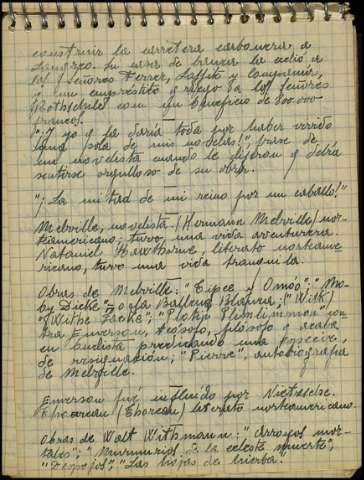 construir la carretera carbonera a
Langreo. Su casa de banca la cedió a
los Señores Ferrer, Laffite y compañia,
y un empréstito y riesgo a los señores
Rothschild con un beneficio de 800.000
francos.
"¡Y yo la daria toda por haber vivido
una sola de mis novelas!", frase de
un novelista cuando le dijeron q debia
sentirse orgulloso de su obra.
"¡La mitad de mi reino por un caballo!"
Melville, novelista (Hermann Melville) nor-
teamericano; tuvo una vida aventurera.
Nataniel Hawthorne, literato norteame
ricano, tuvo una vida tranquila.
Obras de Melville: "Tipee y Omóo"; "Mo-
by Dicke" o la Ballena Blanca; "With
Withe Jacke"; "Plotin Plinlimmon con
tra Emerson, teósofo, filósofo y acaba
en budista predicando una especie
de resignación; "Pierre" autobiografia
de Melville.
Emerson fue influido por Nietzsche.
(Thoreau) literato norteamericano.
Obras de Walt Withmann: "Arroyos mor-
tales"; "Murmurios de la celeste muerte";
"Despojos"; "Las hojas de hierba".